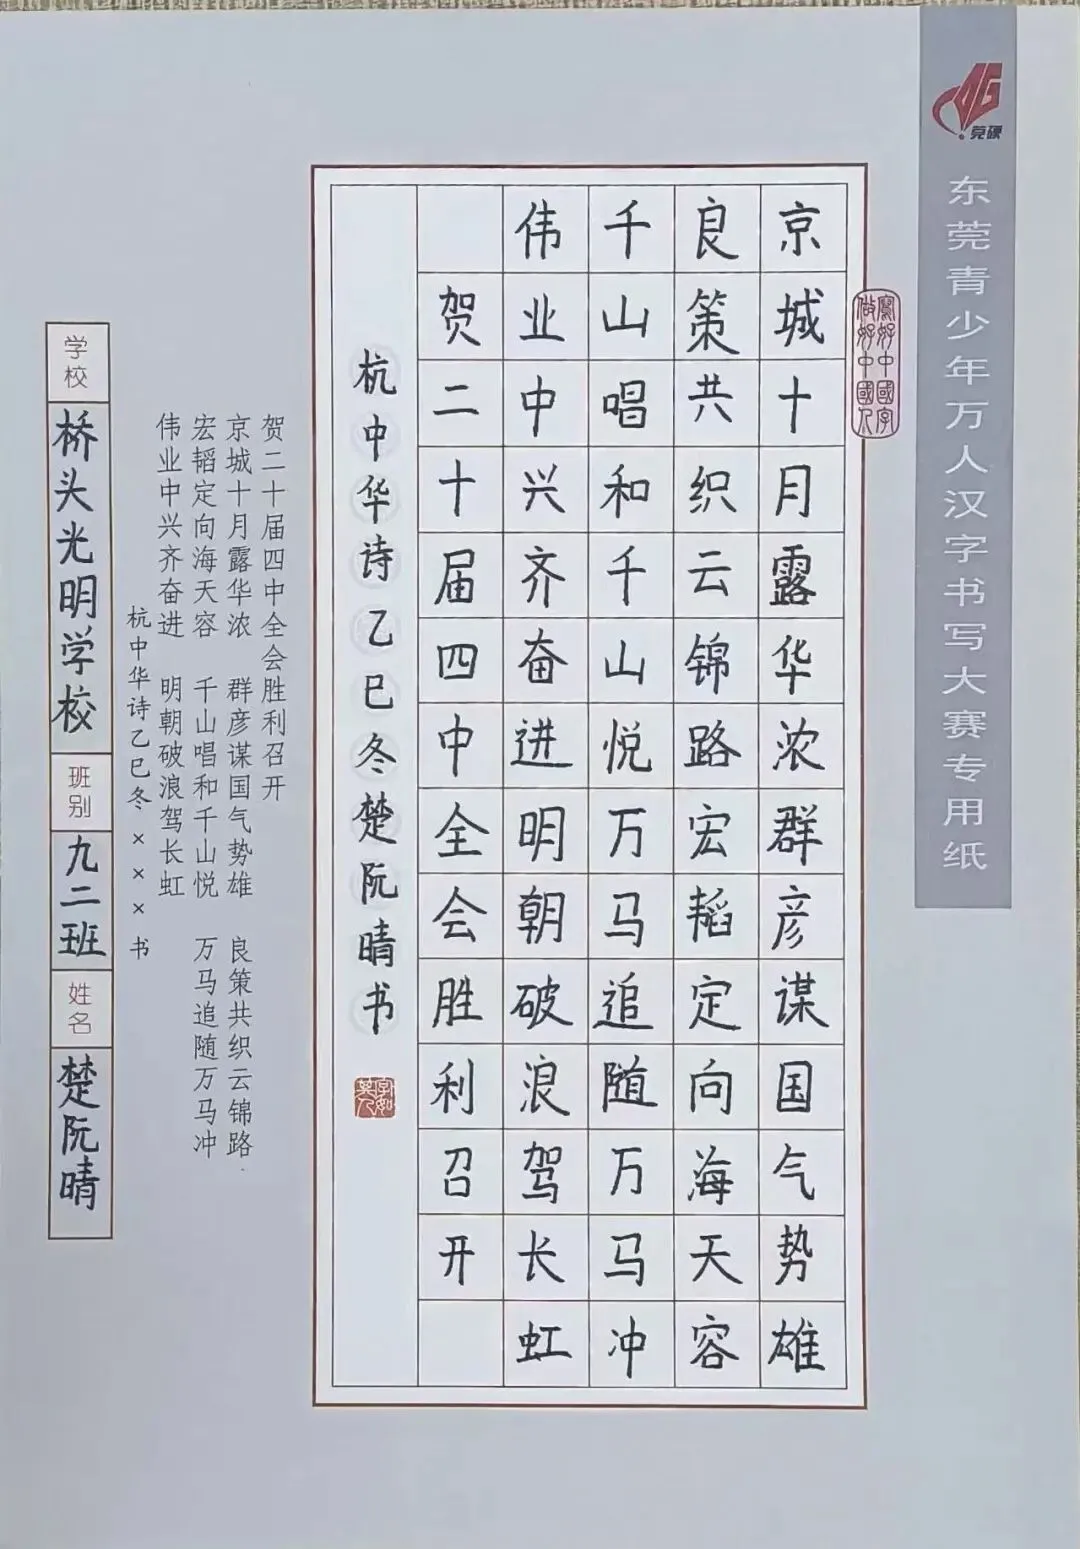 莞硬
东莞青少年万人汉字书写大赛专用纸
寫好中國字
做好中國人
京城十月露华浓群彦谋国气势雄
良策共织云锦路宏韬定向海天容
千山唱和千山悦万马追随万马冲
伟业中兴齐奋进明朝破浪驾长虹
贺二十届四中全会胜利召开
杭中华诗乙巳冬楚阮晴书
字如其人
贺二十届四中全会胜利召开
京城十月露华浓 群彦谋国气势雄 良策共织云锦路
宏韬定向海天容 千山唱和千山悦 万马追随万马冲
伟业中兴齐奋进 明朝破浪驾长虹
杭中华诗乙巳冬×××书
学校
桥头光明学校
班别
九二班
姓名
楚阮晴